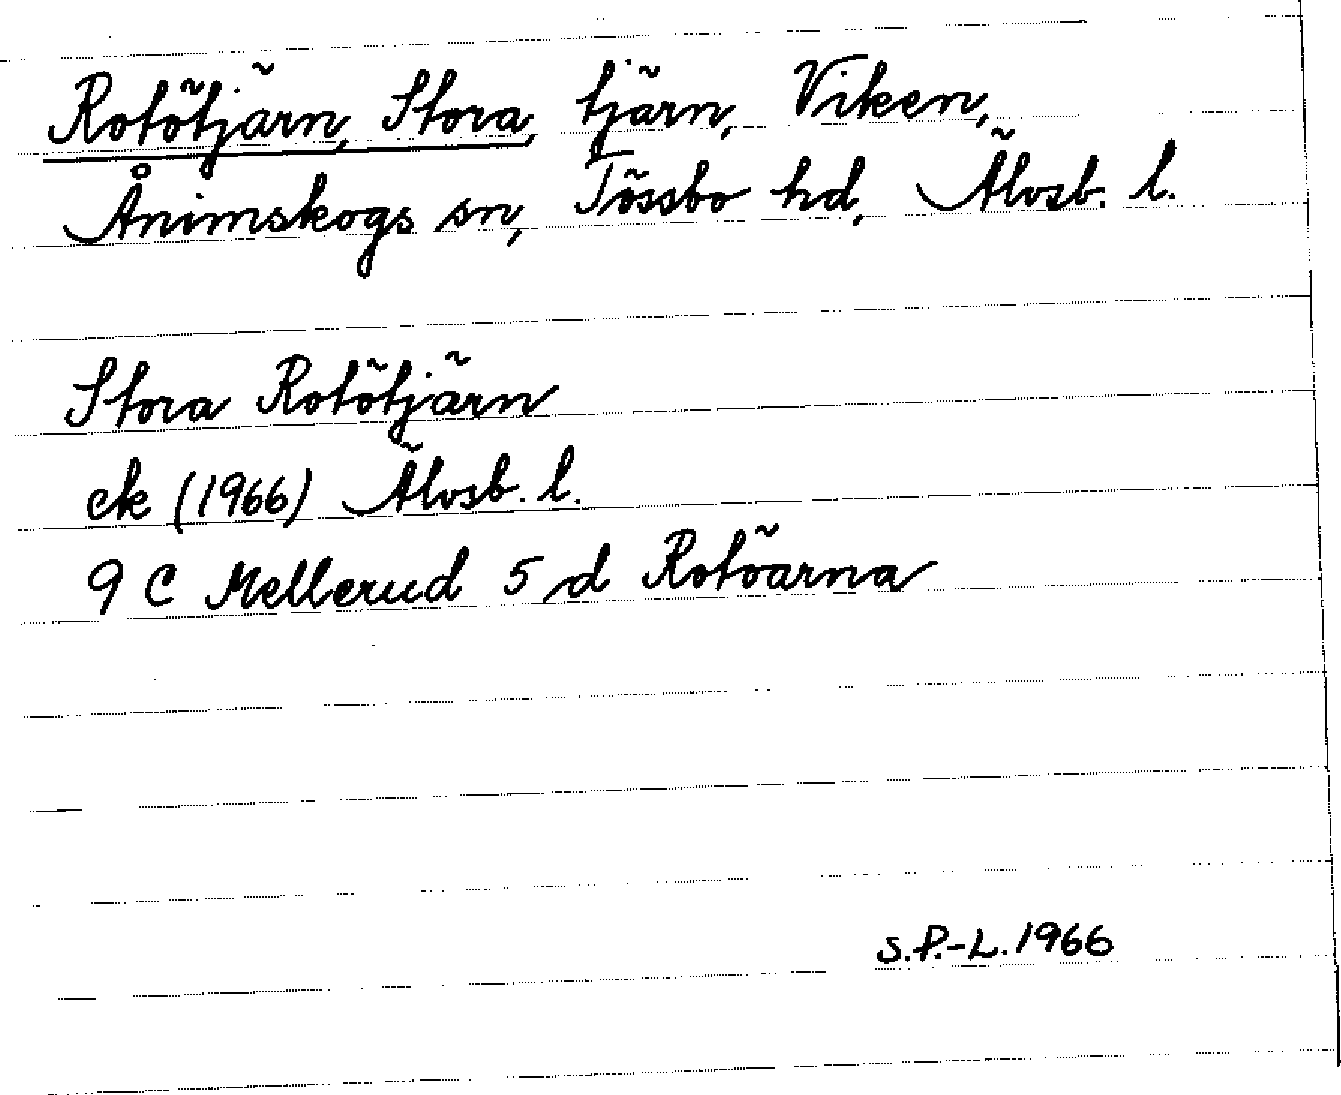 Rotötjärn, Stora, tjärn, Viken,
Ånimskogs sn, Tössbo hd, Älvsb. l.
Stora Rotötjärn
ek (1966) Älvsb. l.
9 C Mellerud 5 d Rotöarna
S.P.-L. 1966